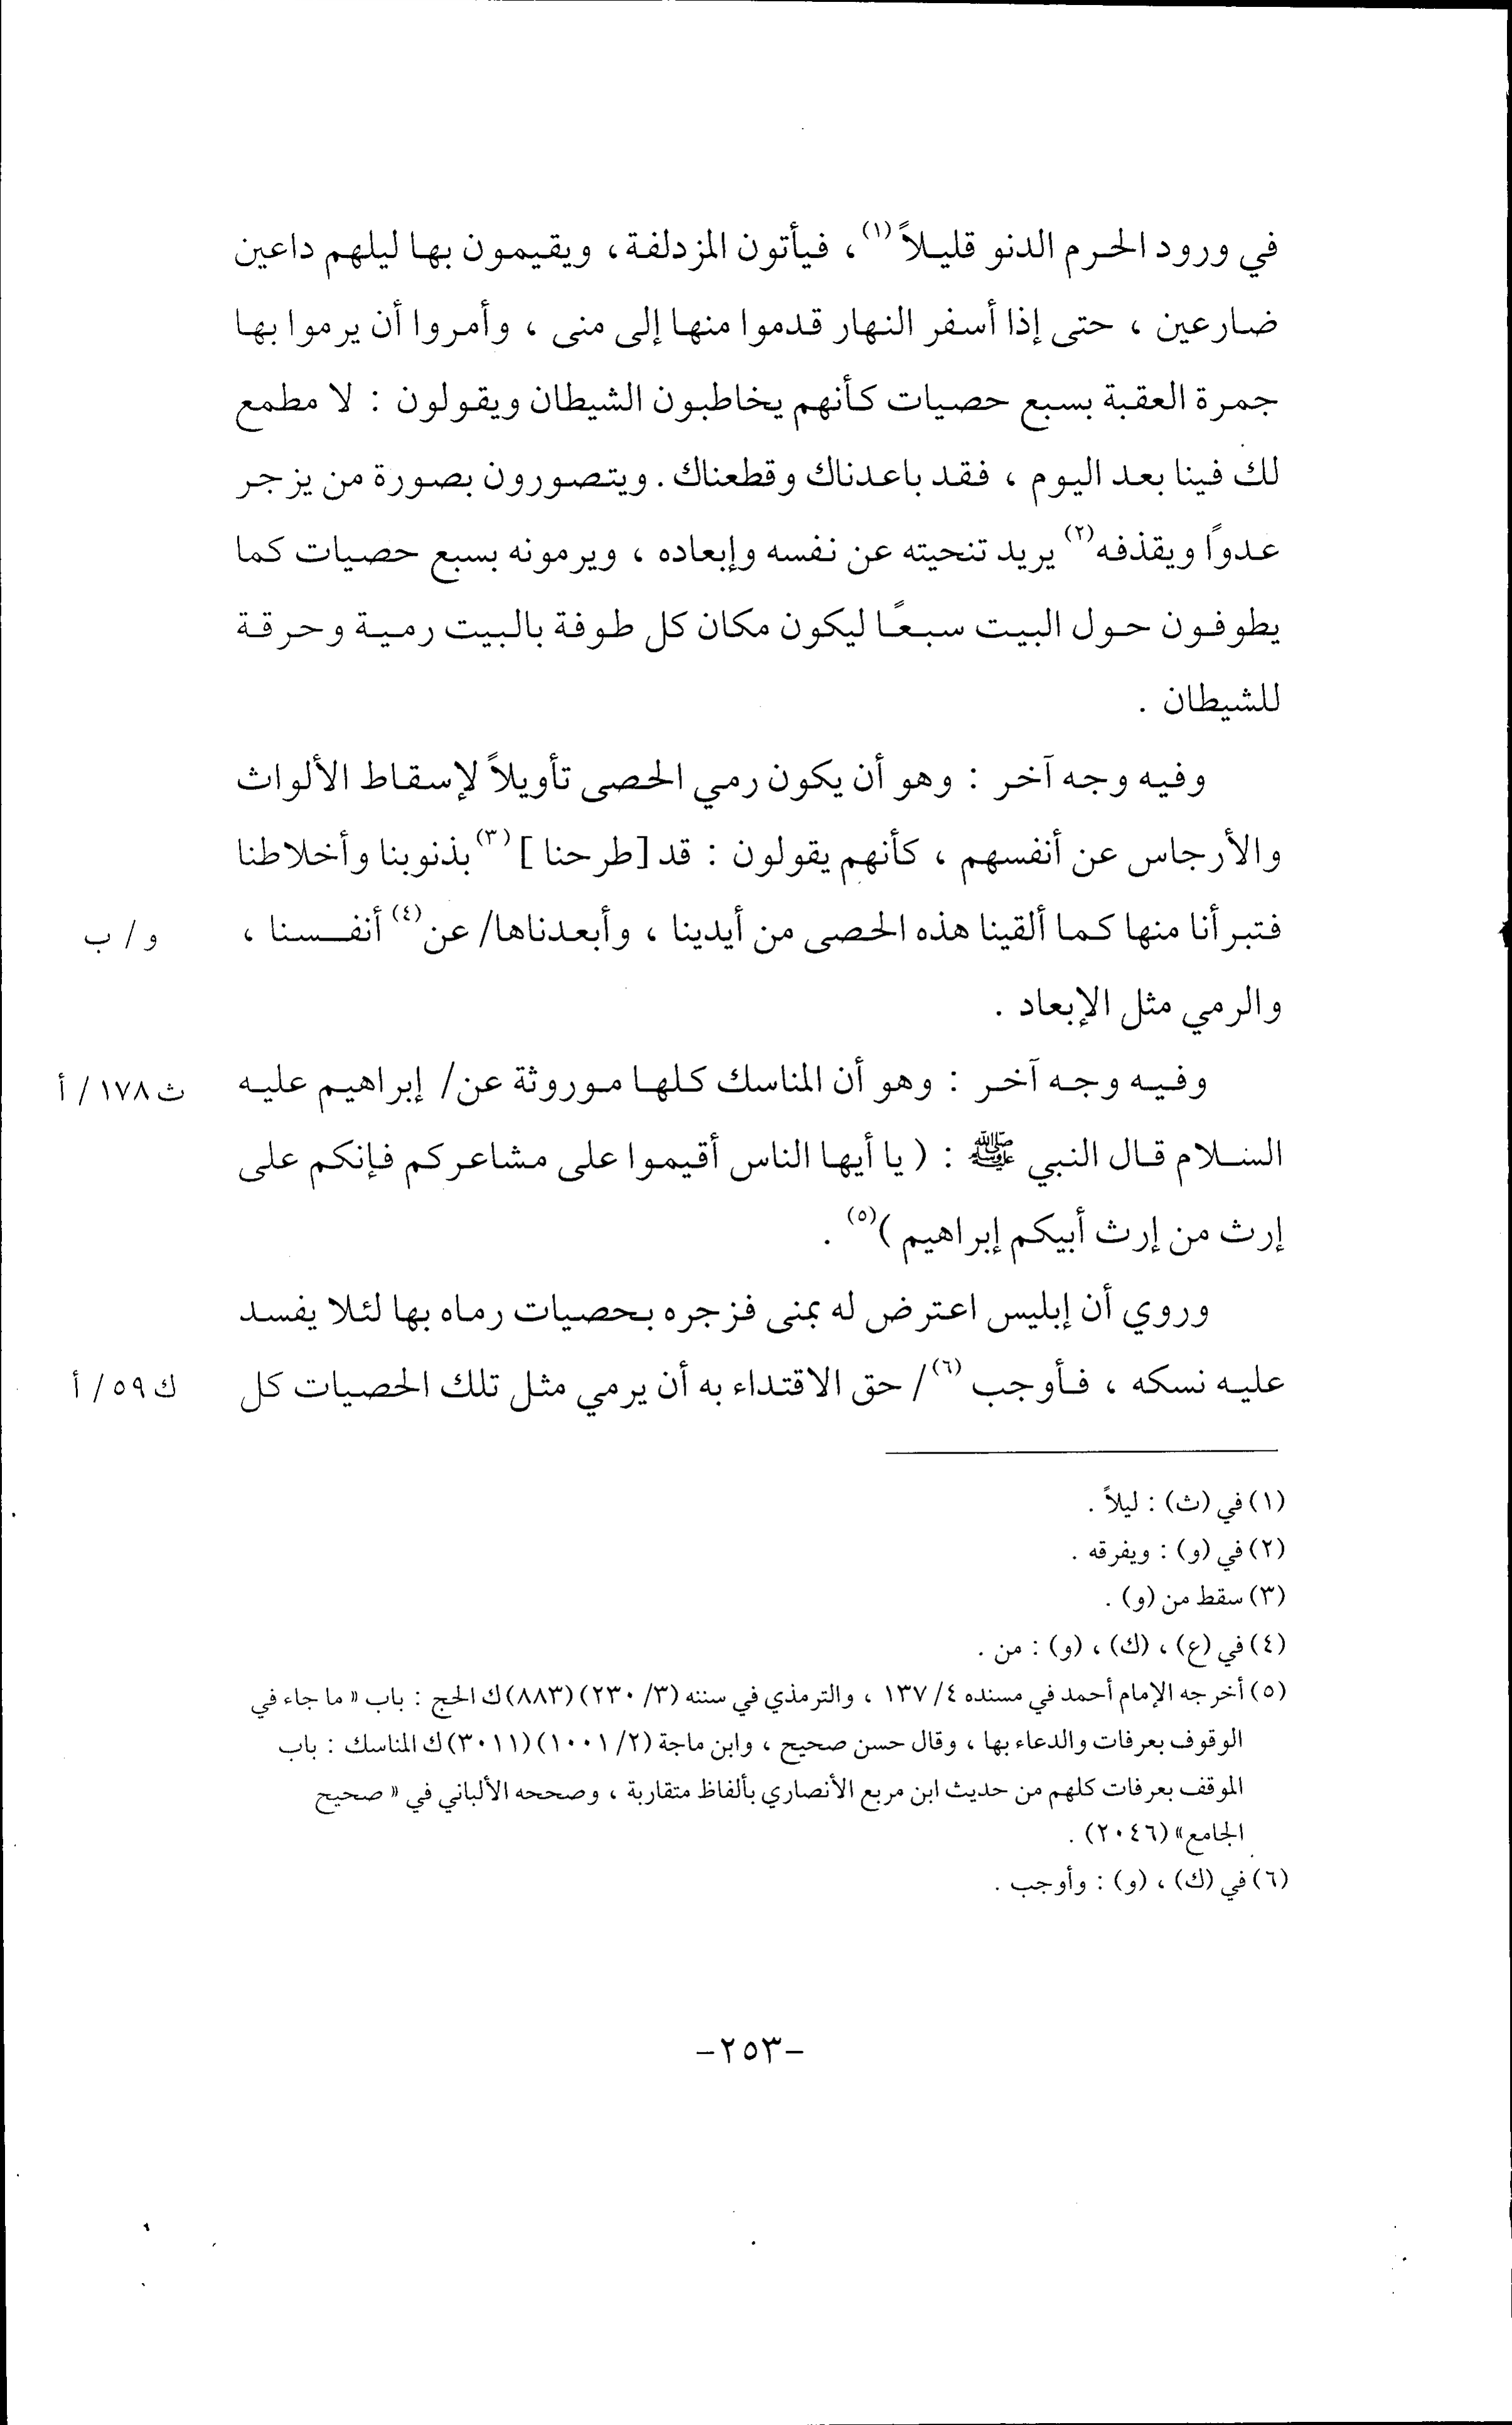 في ورود الحرم الدنو قليلاً(١)، فيأتون المزدلفة، ويقيمون بها ليلهم داعين
ضارعين ، حتى إذا أسفر النهار قدموا منها إلى منى ، وأمروا أن يرموا بها
جمرة العقبة بسبع حصيات كأنهم يخاطبون الشيطان ويقولون : لا مطمع
لك فينا بعد اليوم ، فقد باعدناك وقطعناك . ويتصورون بصورة من يزجر
عدواً ويقذفه(٢) يريد تنحيته عن نفسه وإبعاده ، ويرمونه بسبع حصيات كما
يطوفون حول البيت سبعًا ليكون مكان كل طوفة بالبيت رمية وحرقة
للشيطان .
وفيه وجه آخر : وهو أن يكون رمي الحصى تأويلاً لإسقاط الألواث
والأرجاس عن أنفسهم ، كأنهم يقولون : قد [طرحنا](٣) بذنوبنا وأخلاطنا
فتبرأنا منها كما ألقينا هذه الحصى من أيدينا ، وأبعدناها/ عن(٤) أنفسنا ، و / ب
والرمي مثل الإبعاد .
وفيه وجه آخر : وهو أن المناسك كلها موروثة عن/ إبراهيم عليه ث ١٧٨ / أ
السلام قال النبي ﷺ : ( يا أيها الناس أقيموا على مشاعركم فإنكم على
إرث من إرث أبيكم إبراهيم )(٥) .
وروي أن إبليس اعترض له بمنى فزجره بحصيات رماه بها لئلا يفسد
عليه نسكه ، فأوجب(٦)/ حق الاقتداء به أن يرمي مثل تلك الحصيات كل ك ٥٩ / أ
(١) في (ث) : ليلاً .
(٢) في (و) : ويفرقه .
(٣) سقط من (و) .
(٤) في (ع) ، (ك) ، (و) : من .
(٥) أخرجه الإمام أحمد في مسنده ٤/ ١٣٧ ، والترمذي في سننه (٣/ ٢٣٠) (٨٨٣) ك الحج : باب « ما جاء في
الوقوف بعرفات والدعاء بها ، وقال حسن صحيح ، وابن ماجة (٢/ ١٠٠١) (٣٠١١) ك المناسك : باب
الموقف بعرفات كلهم من حديث ابن مربع الأنصاري بألفاظ متقاربة ، وصححه الألباني في « صحيح
الجامع» (٢٠٤٦) .
(٦) في (ك) ، (و) : وأوجب .
-٢٥٣-